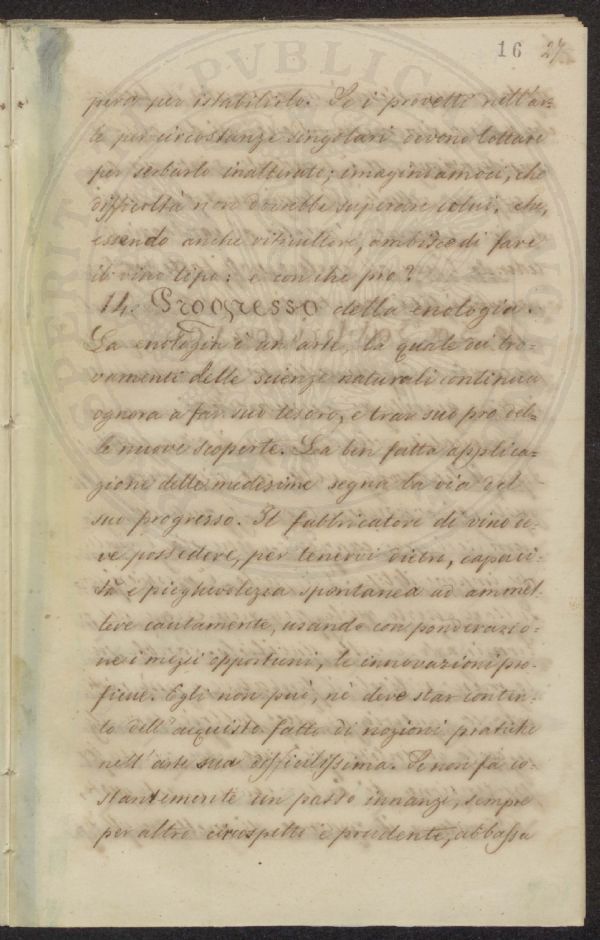 16 27
pera per istabilirlo. Se i provetti nell'ar=
te per circostanze singolari devono lottare
per serbarlo inalterato; imaginiamoci, che
difficoltà non dovrebbe superare colui, che,
essendo anche viticultore, ambisce di fare
il vino tipo: e con che pro?
14. Progresso della enologia.
La enologia è un'arte, la quale dei tro=
vamenti delle scienze naturali continua
ognora a far suo tesoro, e trar suo pro del=
le nuove scoperte. La ben fatta applica=
zione delle medesime segna la via del
suo progresso. Il fabbricatore di vino de=
ve possedere, per tenervi dietro, capaci=
tà e pieghevolezza spontanea ad ammet=
tere cautamente, usando con ponderazio=
ne i mezzi opportuni, le innovazioni pro=
ficue. Egli non può, nè deve star conten=
to dell'acquisto fatto di nozioni pratiche
nell'arte sua difficilissima. Se non fa co=
stantemente un passo innanzi, sempre
per altro circospetto e prudente, abbassa
PERITAN PVBLIC